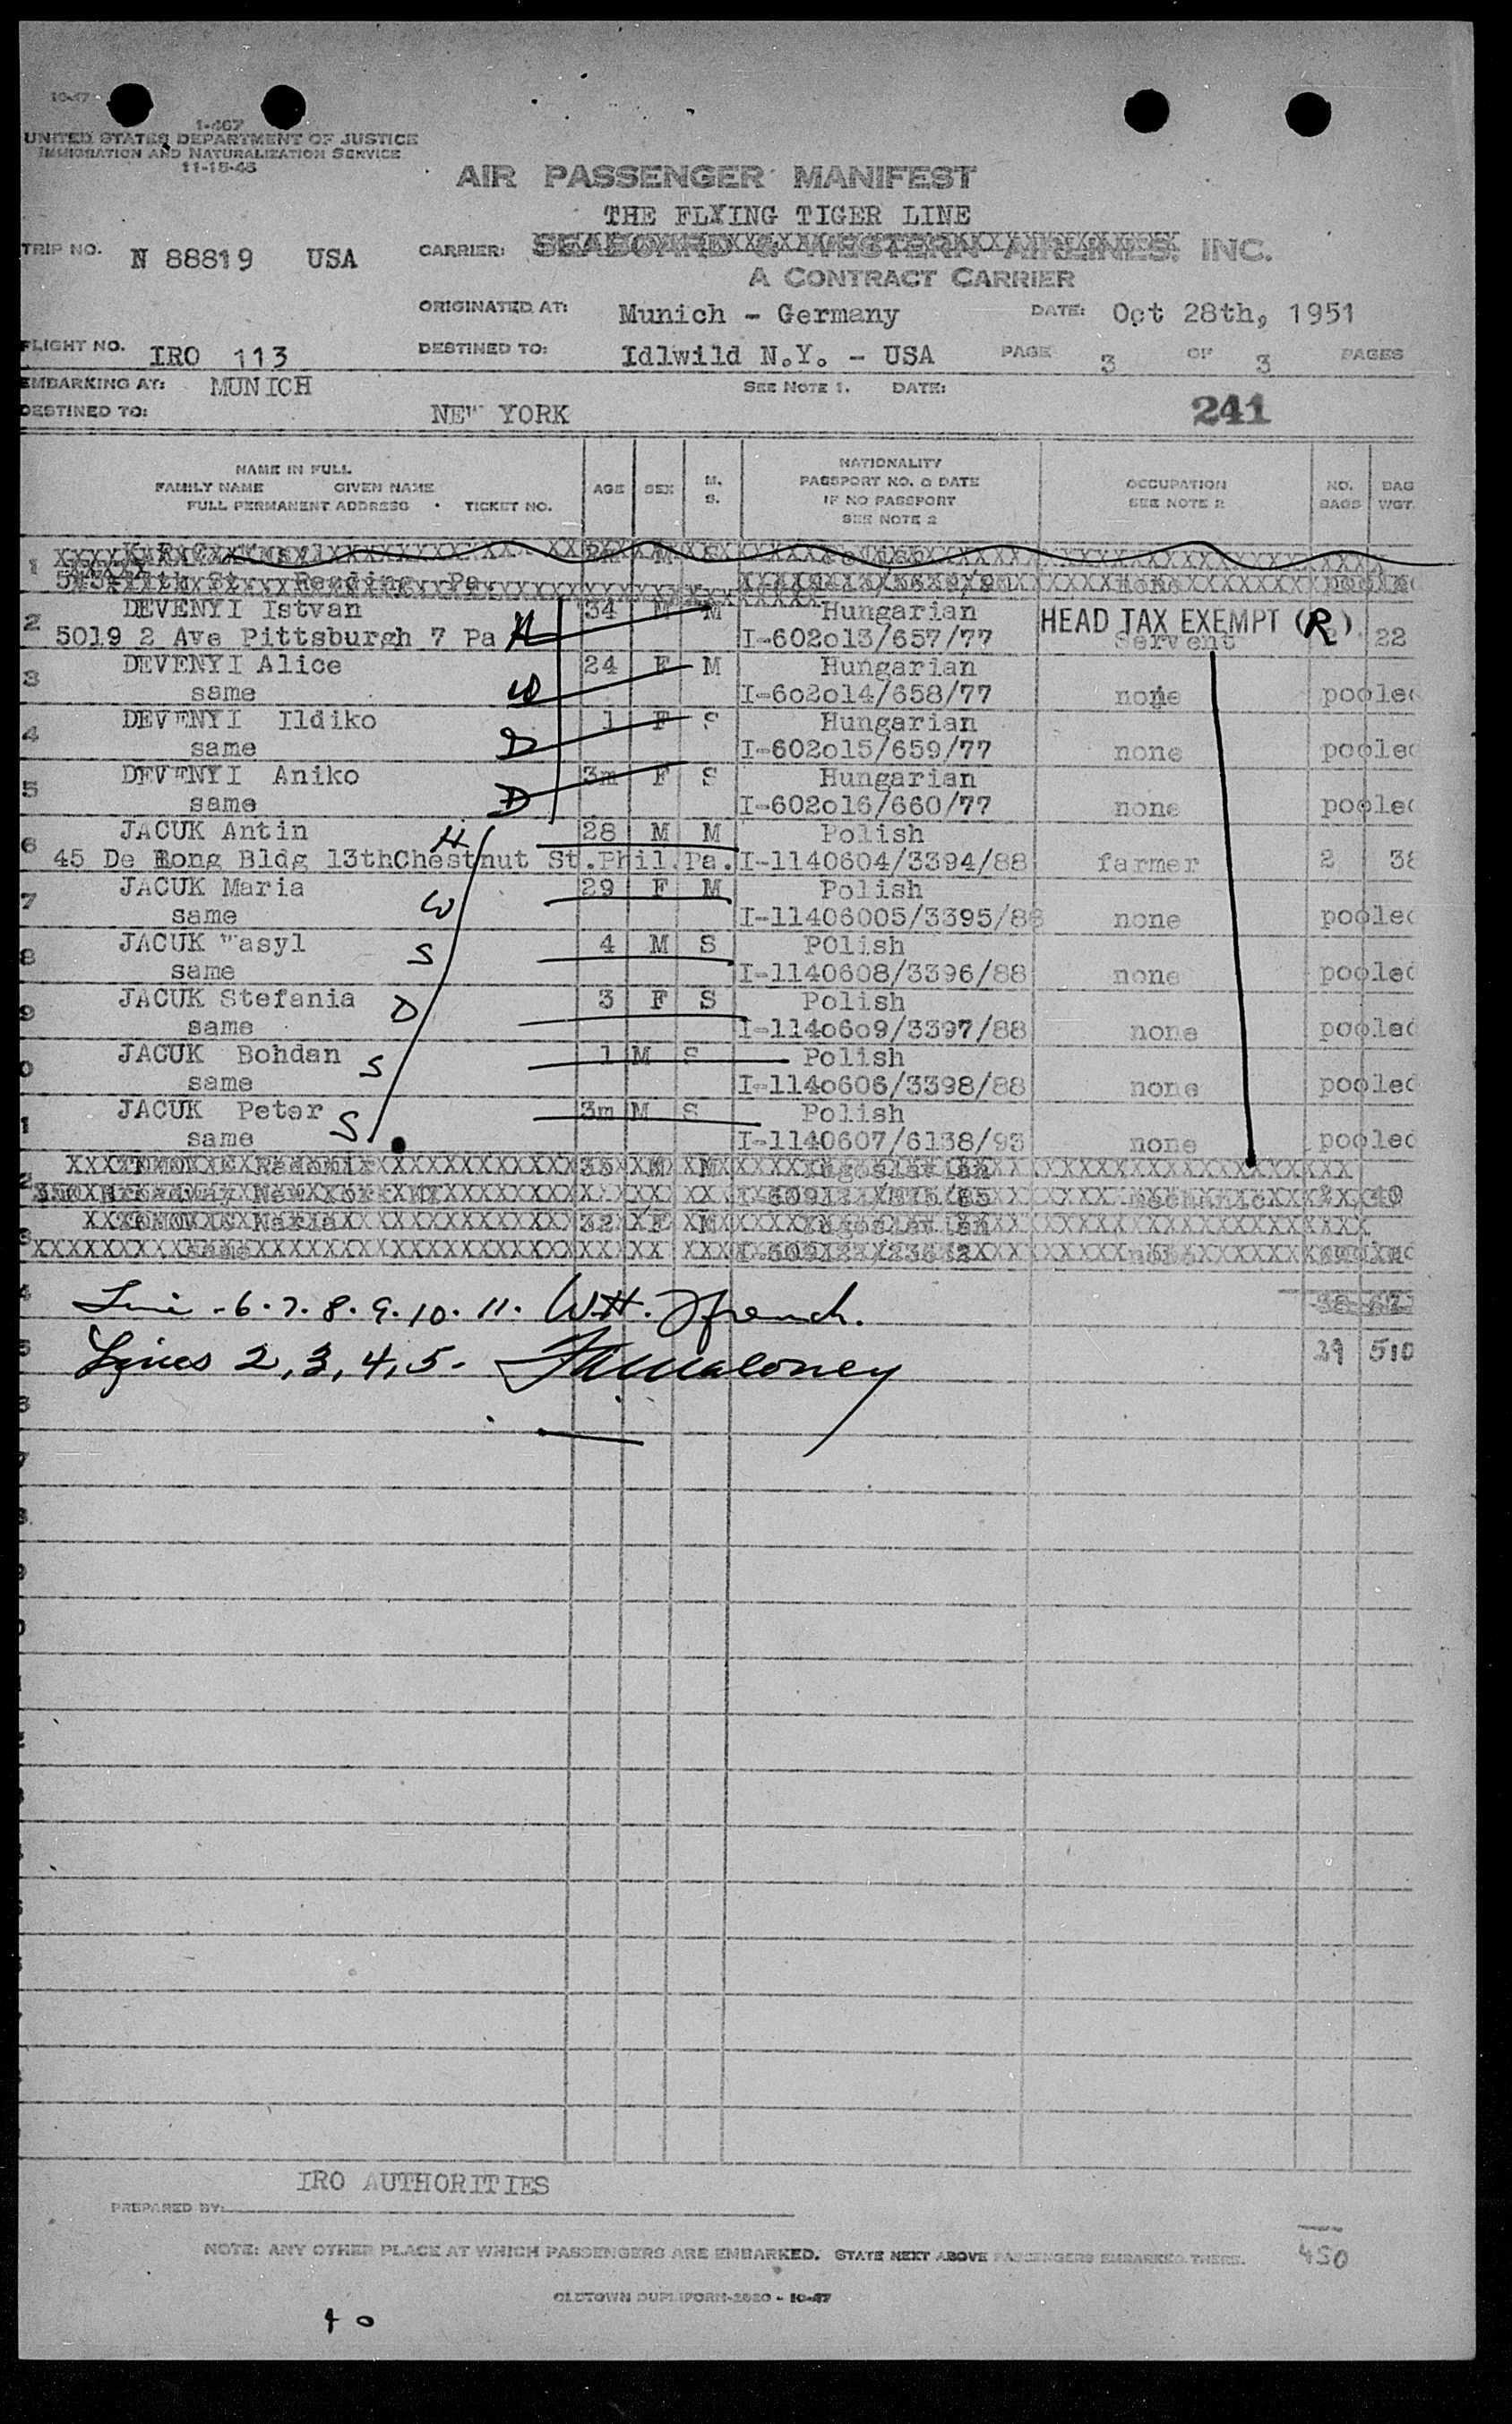 10-47
1-467
UNITED STATES DEPARTMENT OF JUSTICE
IMMIGRATION AND NATURALIZATION SERVICE
11-15-45
AIR PASSENGER MANIFEST
THE FLYING TIGER LINE
TRIP NO. N 88819 USA CARRIER: SEABOARD & WESTERN AIRLINES, INC.
A CONTRACT CARRIER
ORIGINATED AT: Munich - Germany DATE: Oct 28th, 1951
FLIGHT NO. IRO 113 DESTINED TO: Idlwild N.Y. - USA PAGE 3 OF 3 PAGES
EMBARKING AT: MUNICH SEE NOTE 1. DATE:
DESTINED TO: NEW YORK 241
NAME IN FULL
FAMILY NAME GIVEN NAME
FULL PERMANENT ADDRESS • TICKET NO.
AGE SEX M. S.
NATIONALITY
PASSPORT NO. & DATE
IF NO PASSPORT
SEE NOTE 2
OCCUPATION
SEE NOTE 2
NO. BAGS
BAG WGT.
1
Reading Pa
2 DEVENYI Istvan H 34 M M Hungarian HEAD TAX EXEMPT (R)
5019 2 Ave Pittsburgh 7 Pa I-602o13/657/77 Servent 2 22
3 DEVENYI Alice W 24 F M Hungarian
same I-602o14/658/77 none pooled
4 DEVENYI Ildiko D 1 F S Hungarian
same I-602o15/659/77 none pooled
5 DEVENYI Aniko D 3m F S Hungarian
same I-602o16/660/77 none pooled
6 JACUK Antin H 28 M M Polish
45 De Long Bldg 13thChestnut St.Phil.Pa. I-1140604/3394/88 farmer 2 38
7 JACUK Maria W 29 F M Polish
same I-11406005/3395/88 none pooled
8 JACUK Wasyl S 4 M S POlish
same I-1140608/3396/88 none pooled
9 JACUK Stefania D 3 F S Polish
same I-114o6o9/3397/88 none pooled
0 JACUK Bohdan S 1 M S Polish
same I-114o606/3398/88 none pooled
1 JACUK Peter S 3m M S Polish
same I-1140607/6138/93 none pooled
2 35 M M Yugoslavian
40
3 32 F M Yugoslavian
same
Line - 6. 7. 8. 9. 10. 11. W.H. French.
Lines 2, 3, 4, 5 - Maloney
29 510
IRO AUTHORITIES
PREPARED BY:
NOTE: ANY OTHER PLACE AT WHICH PASSENGERS ARE EMBARKED. STATE NEXT ABOVE PASSENGERS EMBARKED THERE.
450
OLDTOWN DUPLIFORM-2880 - 10-47
40